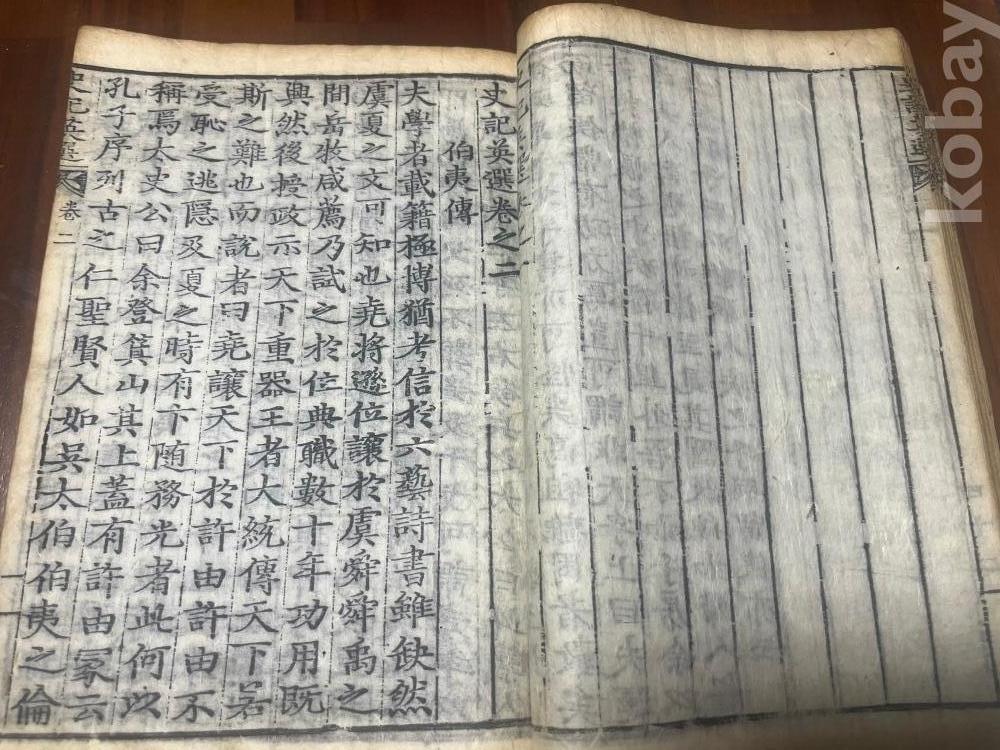 史記英選卷之二
伯夷傳
夫學者載籍極博猶考信於六藝詩書雖缺然
虞夏之文可知也堯將遜位讓於虞舜舜禹之
間岳牧咸薦乃試之於位典職數十年功用既
興然後授政示天下重器王者大統傳天下若
斯之難也而說者曰堯讓天下於許由許由不
受恥之逃隱及夏之時有卞随務光者此何以
稱焉太史公曰余登箕山其上蓋有許由冢云
孔子序列古之仁聖賢人如吳太伯伯夷之倫
史記英選 卷二
kobay